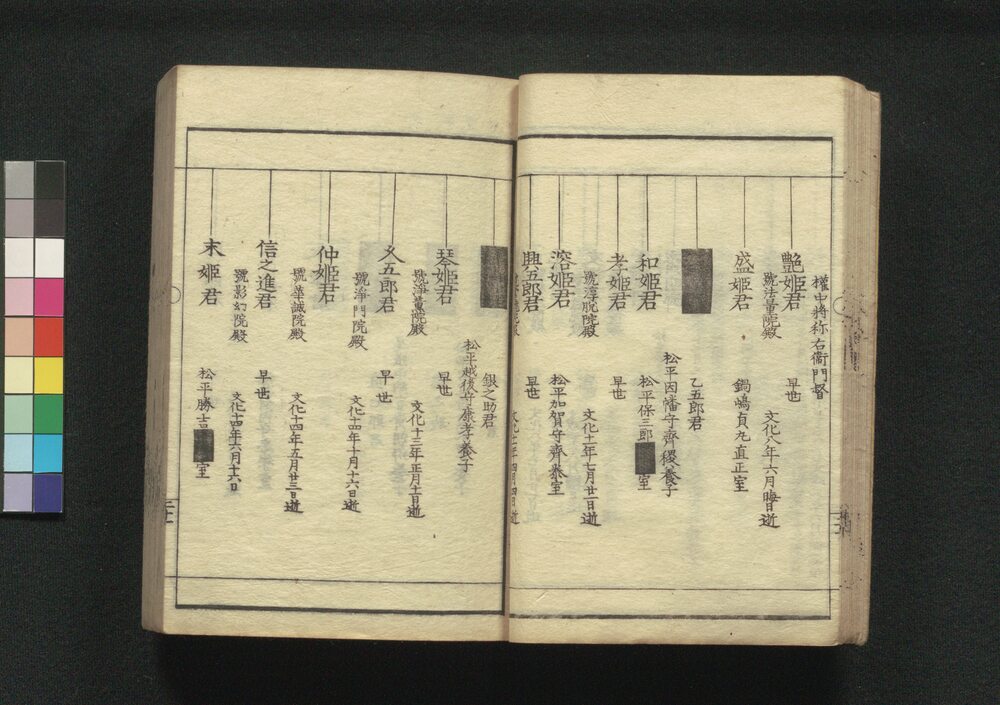 權中將称右衞門督
艶姫君
早世
號法量院殿
文化八年六月晦日逝
盛姫君
鍋嶋貞丸直正室
乙五郎君
松平因幡守齊稷養子
和姫君
松平保三郎
室
孝姫君
早世
號淳脱院殿
文化十一年七月廿一日逝
溶姫君
松平加賀守齊泰室
興五郎君
早世
琴姫君
早世
號淨薫院殿
文化十三年正月十一日逝
銀之助君
松平越後守康孝養子
久五郎君
早世
號淨門院殿
文化十四年十月十六日逝
仲姫君
信之進君
早世
號華誠院殿
文化十四年五月廿三日逝
號影幻院殿
文化十四年六月十六日
末姫君
松平勝吉
室